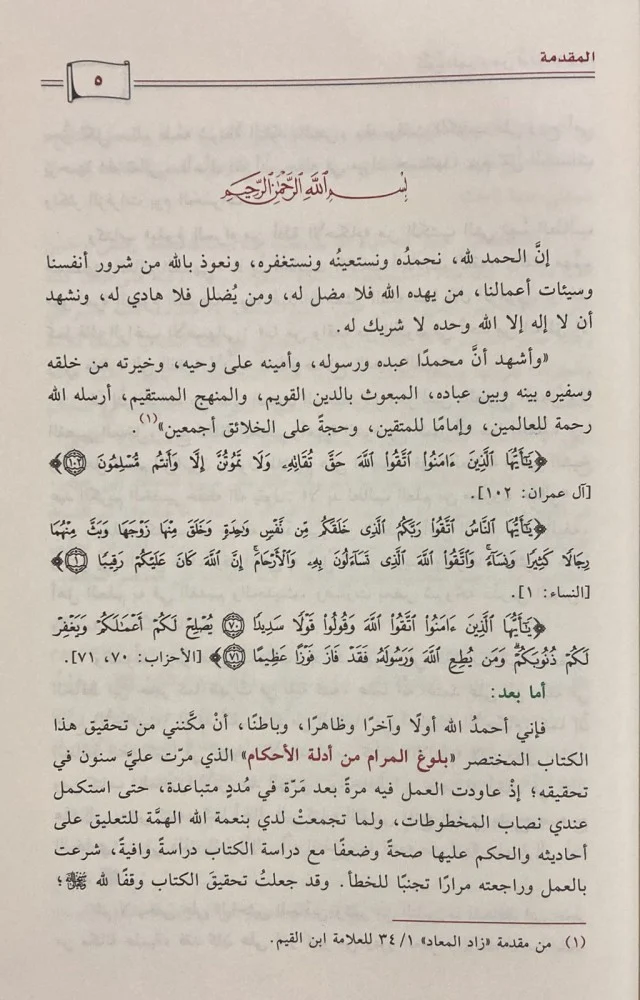 المقدمة
٥
بسم الله الرحمن الرحيم
إنَّ الحمد لله، نحمدُه ونستعينُه ونستغفره، ونعوذ بالله من شرور أنفسنا
وسيئات أعمالنا، من يهده الله فلا مضل له، ومن يُضلل فلا هادي له، ونشهد
أن لا إله إلا الله وحده لا شريك له.
«وأشهد أنَّ محمدًا عبده ورسوله، وأمينه على وحيه، وخيرته من خلقه
وسفيره بينه وبين عباده، المبعوث بالدين القويم، والمنهج المستقيم، أرسله الله
رحمة للعالمين، وإمامًا للمتقين، وحجةً على الخلائق أجمعين»(١).
﴿يَٰٓأَيُّهَا ٱلَّذِينَ ءَامَنُوا۟ ٱتَّقُوا۟ ٱللَّهَ حَقَّ تُقَاتِهِۦ وَلَا تَمُوتُنَّ إِلَّا وَأَنتُم مُّسْلِمُونَ ١٠٢﴾
[آل عمران: ١٠٢].
﴿يَٰٓأَيُّهَا ٱلنَّاسُ ٱتَّقُوا۟ رَبَّكُمُ ٱلَّذِى خَلَقَكُم مِّن نَّفْسٍ وَٰحِدَةٍ وَخَلَقَ مِنْهَا زَوْجَهَا وَبَثَّ مِنْهُمَا
رِجَالًا كَثِيرًا وَنِسَآءً ۚ وَٱتَّقُوا۟ ٱللَّهَ ٱلَّذِى تَسَآءَلُونَ بِهِۦ وَٱلْأَرْحَامَ ۚ إِنَّ ٱللَّهَ كَانَ عَلَيْكُمْ رَقِيبًا ١﴾
[النساء: ١].
﴿يَٰٓأَيُّهَا ٱلَّذِينَ ءَامَنُوا۟ ٱتَّقُوا۟ ٱللَّهَ وَقُولُوا۟ قَوْلًا سَدِيدًا ٧٠ يُصْلِحْ لَكُمْ أَعْمَٰلَكُمْ وَيَغْفِرْ
لَكُمْ ذُنُوبَكُمْ ۗ وَمَن يُطِعِ ٱللَّهَ وَرَسُولَهُۥ فَقَدْ فَازَ فَوْزًا عَظِيمًا ٧١﴾ [الأحزاب: ٧٠، ٧١].
أما بعد:
فإني أحمدُ الله أولًا وآخرًا وظاهرًا، وباطنًا، أنْ مكَّنني من تحقيق هذا
الكتاب المختصر «بلوغ المرام من أدلة الأحكام» الذي مرّت عليَّ سنون في
تحقيقه؛ إذْ عاودت العمل فيه مرةً بعد مَرّة في مُددٍ متباعدة، حتى استكمل
عندي نصاب المخطوطات، ولما تجمعتْ لدي بنعمة الله الهمَّة للتعليق على
أحاديثه والحكم عليها صحةً وضعفًا مع دراسة الكتاب دراسةً وافيةً، شرعت
بالعمل وراجعته مرارًا تجنبًا للخطأ. وقد جعلتُ تحقيقَ الكتاب وقفًا لله ﷻ؛
(١) من مقدمة «زاد المعاد» ٣٤/١ للعلامة ابن القيم.